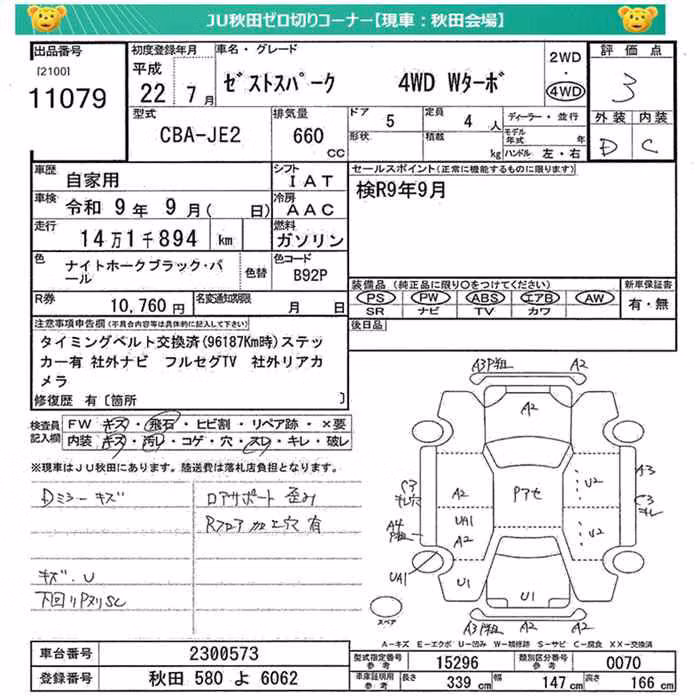 JU秋田ゼロ切りコーナー【現車：秋田会場】
出品番号
[2100]
11079
初度登録年月
平成
22 7月
車名・グレード
ゼストスパーク 4WD Wターボ
2WD
・
4WD
評価点
3
外装 内装
D C
型式
CBA-JE2
排気量
660
CC
ドア 5
定員 4 人
形状
積載 kg
ディーラー・並行
モデル年式 年
ハンドル 左・右
車歴 自家用
シフト IAT
車検 令和 9年 9月( 日)
冷房 AAC
走行 14万1千894 km
燃料 ガソリン
色 ナイトホークブラック・パール
色替
色コード B92P
R券 10,760円
名変通知期限 月 日
セールスポイント(正常に機能するものに限ります)
検R9年9月
装備品 (純正品に限り〇をつけてください)
新車保証書
PS PW ABS エアB AW
有・無
SR ナビ TV カワ
後日品
注意事項申告欄(不具合内容等は具体的に記入して下さい)
タイミングベルト交換済(96187Km時)ステッ
カー有 社外ナビ フルセグTV 社外リアカ
メラ
修復歴 有〔箇所 〕
検査員
記入欄
FW キズ・飛石・ヒビ割・リペア跡・×要
内装 キズ・汚レ・コゲ・穴・スレ・キレ・破レ
※現車はJU秋田にあります。陸送費は落札店負担となります。
Dミラーキズ
ロアサポート 歪み
Rフロア加工穴 有
キズ.U
下回りPヌリSC
A3P粗 A2
A2
A2
UA1
A2
Pアセ
U2
U2
A3
C3
キレ穴
A4
P粗
C3
キレ
UA1
U1
U1
A2
A3P粗 A2
スペア
A-キズ E-エクボ U-凹み W-補修跡 S-サビ C-腐食 XX-交換済
車台番号 2300573
登録番号 秋田 580 よ 6062
型式指定番号
参考
15296
類別区分番号
参考
0070
車庫証明用
参考
長さ 339 cm
幅 147 cm
高さ 166 cm